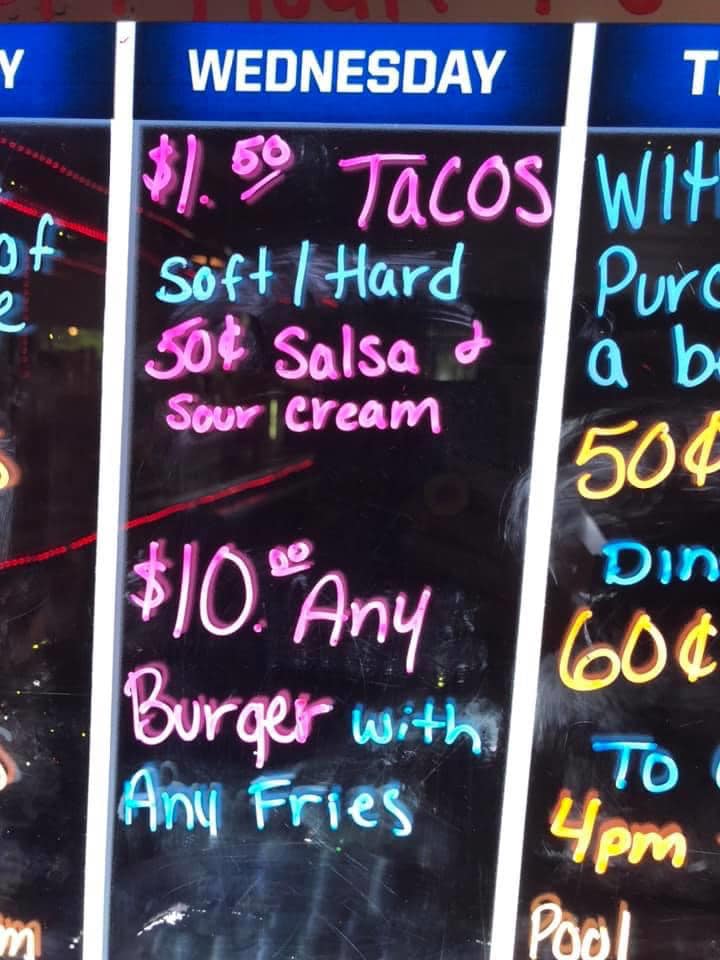 WEDNESDAY
$1.50 TACOS
Soft / Hard
50¢ Salsa &
Sour Cream
$10.00 Any
Burger with
Any Fries
Y
of
e
m
T
With
Purc
a b
50¢
Din
60¢
To
4pm
Pool